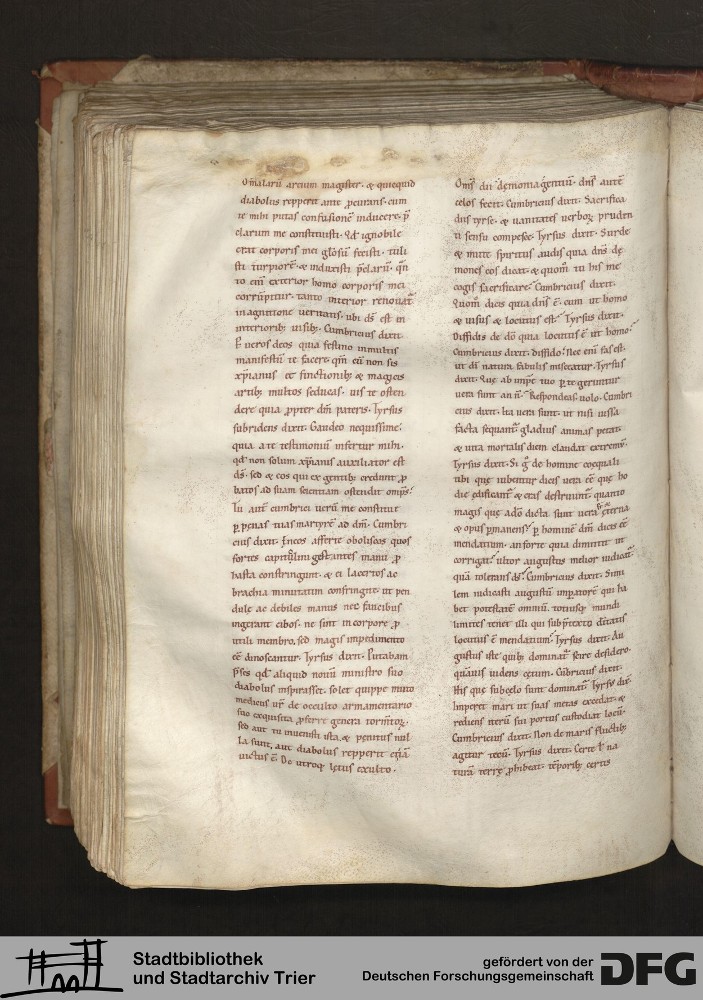 O malarū artium magister. & quicquid
diabolus repperit ante p̄curans. cum
te mihi putas confusionē inducere. p̄
clarum me constituisti. Qđ ignobile
erat corporis mei glōsū fecisti. tuli
sti turpiorē. & induxisti p̄clarū. qn̄
to enī exterior homo corporis mei
corrūpitur. tanto interior renouat᷑
in agnitione ueritatis. ubi ds̄ est in
interiorib; uisib; Cumbricius dixit.
ꝑ ueros deos quia festino in multis
manifestū te facere. qm̄ eū non sis
xp̄ianus et finctionib; & magicis
artib; multos seducas. uis te osten
dere quia ꝓpter dm̄ pateris. Tyrsus
subridens dixit. Gaudeo nequissime.
quia a te testimoniū infertur mihi.
qđ non solum xp̄ianis auxiliator est
ds̄. sed & eos qui ex gentib; credunt ꝓ
batos ad suam scientiam ostendit omīps̄.
Tu autē cumbrici uerū me constituit
ꝑ penas tuas martyrē ad dm̄. Cumbri
cius dixit. Ęneos afferte oboliscos quos
fortes capitulini gestantes manu ꝓ
hasta constringunt. & ei lacertos ac
brachia minutatim confringite. ut pen
dulę ac debiles manus nec faucibus
ingerant cibos. ne sint in corpore ꝓ
utili membro. sed magis impedimento
eē dinoscantur. Tyrsus dixit. Putabam
p̄ses qđ aliquid nouū ministro suo
diabolus inspirasset. solet quippe
medicus de occulto armamentario
suo exquisita ꝓferre genera tormtoꝝ.
sed aut tu inuenisti ista. & penitus nul
la sunt. aut diabolus repperit &
uictus ē. De utroq; lętus exulto.
Om̄s dii demonia gentiū. dn̄s autē
celos fecit. Cumbricius dixit. Sacrifica
diis tyrse. & uanitates uerboꝝ pruden
ti sensu compesce. Tyrsus dixit. Surde
& mute spiritus audis quia dn̄s dę
mones eos dicat. & quom̄ tu his me
cogis sacrificare. Cumbricius dixit.
Quom̄ dicis quia dn̄s ē. cum ut homo
& uisus & locutus est. Tyrsus dixit.
Diffidis de dō quia locutus ē ut homo.
Cumbricius dixit. diffido. Nec enī fas est.
ut dī natura fabulis misceatur. Tyrsus
dixit. Quę ab impe tuo ꝑ te geruntur
uera sunt an n̄. Respondeas uolo. Cumbri
cius dixit. Ita uera sunt. ut nisi iussa
facta sequant᷑. gladius animas petat.
& uita mortalis diem claudat extremū.
Tyrsus dixit. Si g̊ de homine coequali
tibi quę iubentur dicis uera eē quę ho
die ędificant᷑ & cras destruunt᷑. quanto
magis quę a dō dicta sunt uera s̄ ęterna
& opus ꝑmanens. ꝑ hominē dm̄ dicis eē
mendatium. an forte quia dimittit ut
corrigat᷑. ultor augustus melior iudicat᷑.
quā tolerans ds̄. Cumbricius dixit. Simi
lem iudicasti augustū impatorē qui ha
bet potestatē omniū. totiusq; mundi
limites tenet illi qui sub p̄texto deitatis
locutus ē mendatium. Tyrsus dixit. Au
gustus iste quib; dominat᷑ scire desidero.
quāuis uidens cętum. Cūbricius dixit.
His que sub cęlo sunt dominat᷑. Tyrsus dix̄.
Imperet mari ut suas metas excedat. &
rediens iterū sui portus custodiat locū.
Cumbricius dixit. Non de maris fluctib;
agitur tecū. Tyrsus dixit. Certe ł na
turā terrę ꝓhibeat. tēporib; certis
Stadtbibliothek
und Stadtarchiv Trier
gefördert von der
Deutschen Forschungsgemeinschaft
DFG